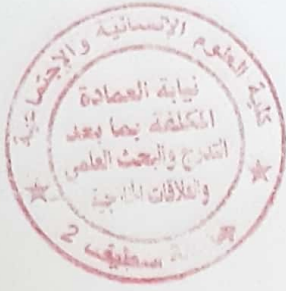 كلية العلوم الإنسانية والاجتماعية
نيابة العمادة
المكلفة بما بعد
التدرج والبحث العلمي
والعلاقات الخارجية
سطيف 2